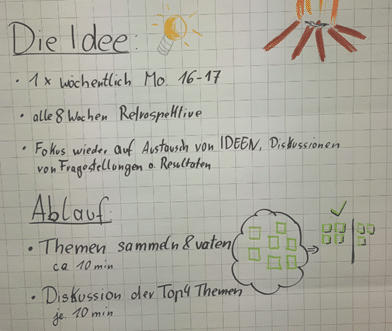 Die Idee:
• 1x wöchentlich Mo 16-17
• alle 8 Wochen Retrospektive
• Fokus wieder auf Austausch von IDEEN, Diskussionen
von Fragestellungen o. Resultaten
Ablauf
• Themen sammeln & voten
ca 10 min
• Diskussion der Top4 Themen
je 10 min